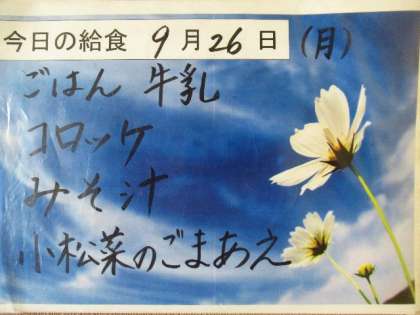 今日の給食 9月26日 (月)
ごはん 牛乳
コロッケ
みそ汁
小松菜のごまあえ